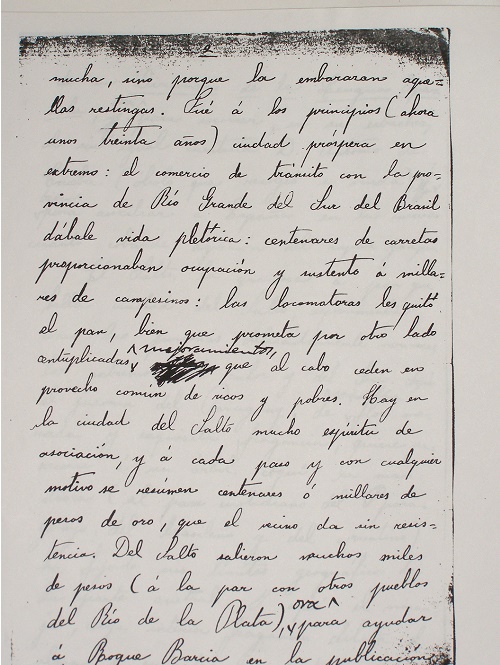 2
mucha, sino porque la embararan aque=
llas restingas. Fué á los principios (ahora
unos treinta años) ciudad próspera en
extremo: el comercio de tránsito con la pro=
vincia de Río Grande del Sur del Brasil
dábale vida pletórica: centenares de carretas
proporcionaban ocupación y sustento á milla=
res de campesinos: las locomotoras les quitó
el pan, bien que prometa por otro lado
centuplicados mejoramientos, que al cabo ceden en
provecho común de ricos y pobres. Hay en
la ciudad del Salto mucho espíritu de
asociación, y á cada paso y con cualquier
motivo se resúmen centenares ó millares de
pesos de oro, que el vecino da sin resis=
tencia. Del Salto salieron muchos miles
de pesos (á la par con otros pueblos
del Río de la Plata), ora para ayudar
á Roque Barcia en la publicación